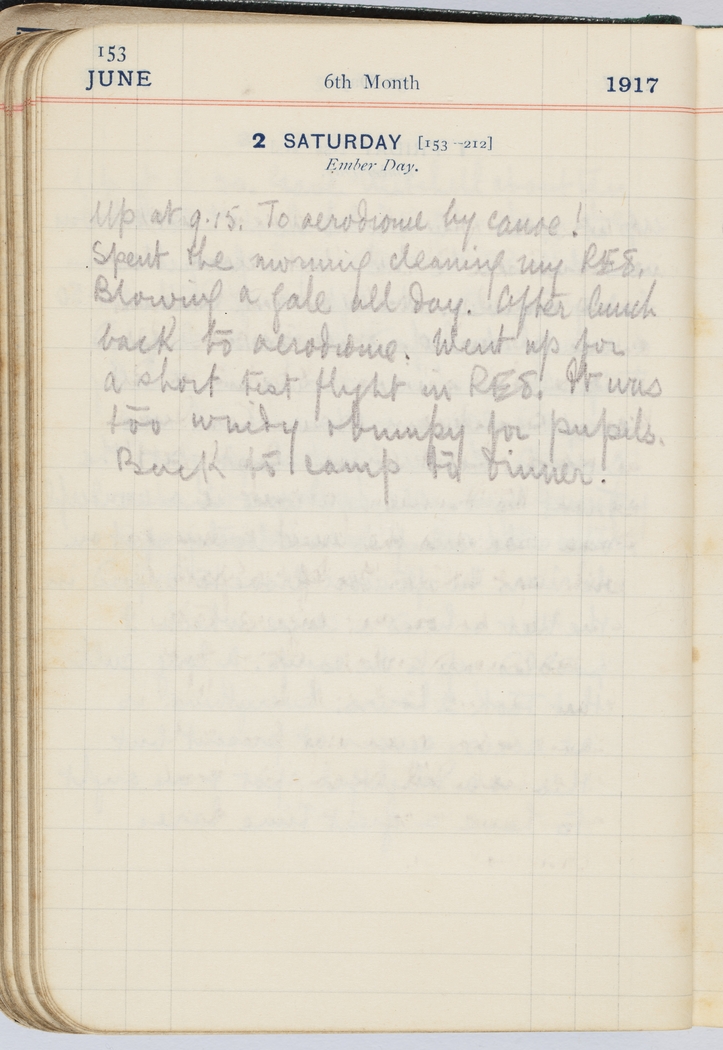 153
JUNE 6th Month 1917
2 SATURDAY [153-212]
Ember Day.
Up at 9.15. To aerodrome by canoe!
Spent the morning cleaning my RE8.
Blowing a gale all day. After lunch
back to aerodrome. Went up for
a short test flight in RE8. It was
too windy & bumpy for pupils.
Back to camp to dinner.